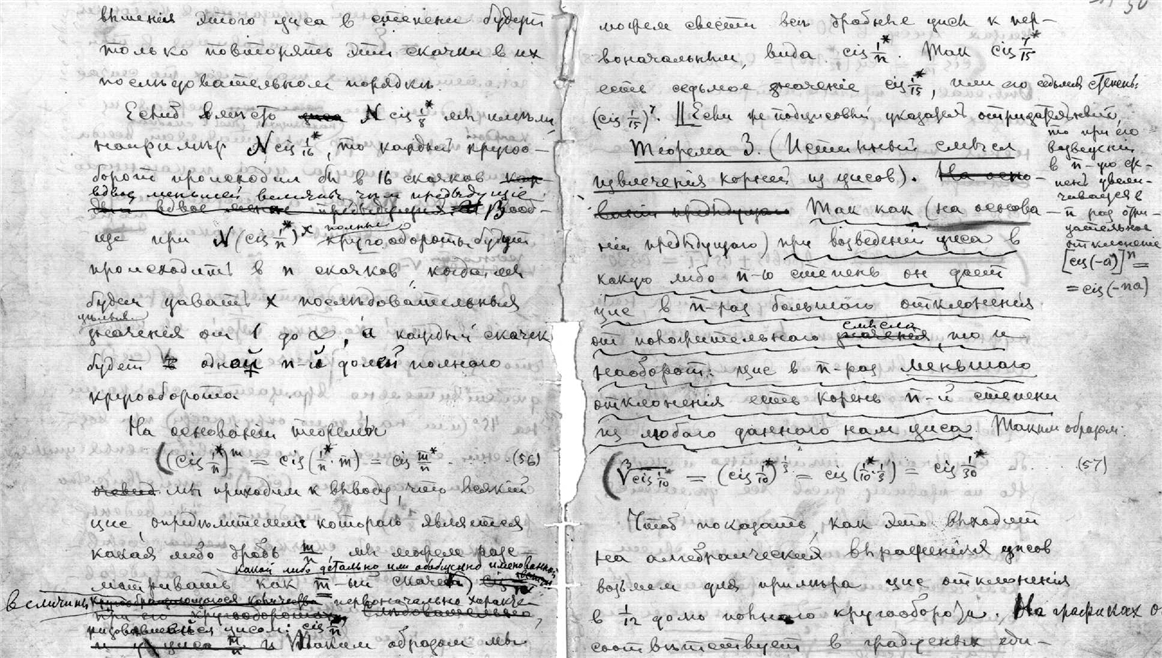 вышенія этого циса в степени будут
только повторять эти скачки в их
послѣдовательном порядкѣ.
Если б вмѣсто N cis 1/8* мы писали
напримѣр N cis 1/16*, то каждый круго-
оборот происходил бы в 16 скачков
вдвое меньшей величины чѣм предыдущіе
Вооб-
ще при N (cis 1/n*)x полные кругообороты будут
происходить в n скачков когда мы
будем давать x послѣдовательныя
цѣлыя
значенія от 1 до ∞, а каждый скачек
будет одной n-й долей полнаго
кругооборота.
На основаніи теоремы
(cis 1/n*)m = cis (1/n* · m) = cis m/n* (56)
мы приходим к выводу, что всякій
цис опредѣлителем котораго является
какая либо дробь m/n, мы можем разс-
какой либо детально или обобщенно именованной
матривать как m-ый скачек
величины первоначально характе-
ризовавшейся цисом cis 1/n*
и Таким образом мы
можем свести всѣ дробные цисы к пер-
воначальным, вида cis 1/n*. Так cis 7/15*
есть седьмое значеніе cis 1/15*, или его седьмая степень
(cis 1/15)7. Если же
то при его
возведеніи
в n-ую сте-
пень увели-
чивается в
n раз отри-
цательное
отклоненіе
[cis (-a)]n =
= cis (-na)
Теорема 3. (Истинный смысл
извлеченія корней из цисов).
Так как (на основа-
ніи предыдущаго) при возведеніи циса в
какую либо n-ю степень он дает
цис в n-раз большаго отклоненія
от положительнаго смысла, то и
наоборот: цис в n-раз меньшаго
отклоненія есть корень n-й степени
из любого даннаго нам циса. Таким образом:
(3√cis 1/10* = (cis 1/10*)1/3 = cis (1/10* · 1/3) = cis 1/30* (57)
Чтоб показать как это выходит
на алгебраическія выраженія цисов
возьмем для примѣра цис отклоненія
в 1/12 долю полнаго кругооборота. На графиках о
соотвѣтствует в градусных еди-